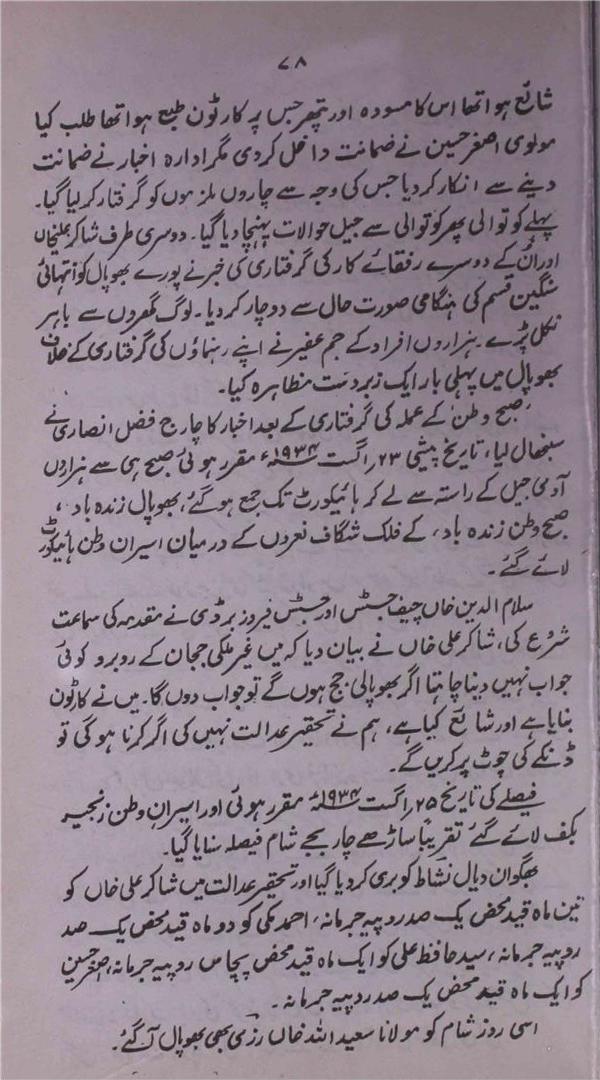 ۷۸
شائع ہوا تھا اس کا مسودہ اور پتھر جس پر کارٹون طبع ہوا تھا طلب کیا
مولوی اصغر حسین نے ضمانت داخل کردی مگر ادارہ اخبار نے ضمانت
دینے سے انکار کر دیا جس کی وجہ سے چاروں ملزموں کو گرفتار کر لیا گیا۔
پہلے کوتوالی پھر کوتوالی سے جیل حوالات پہنچا دیا گیا۔ دوسری طرف شاکر علیخاں
اور اُن کے دوسرے رفقائے کار کی گرفتاری کی خبر نے پورے بھوپال کو انتہائی
سنگین قسم کی ہنگامی صورت حال سے دوچار کر دیا۔ لوگ گھروں سے باہر
نکل پڑے۔ ہزاروں افراد کے جم غفیر نے اپنے رہنماؤں کی گرفتاری کے خلاف
بھوپال میں پہلی بار ایک زبردست مظاہرہ کیا۔
'صبح وطن' کے عملہ کی گرفتاری کے بعد اخبار کا چارج فضل انصاری نے
سنبھال لیا، تاریخ پیشی ۲۳ اگست ۱۹۳۴ء مقرر ہوئی صبح ہی سے ہزاروں
آدمی جیل کے راستہ سے لے کر ہائیکورٹ تک جمع ہو گئے، بھوپال زندہ باد،
صبح وطن زندہ باد، کے فلک شگاف نعروں کے درمیان اسیران وطن ہائیکورٹ
لائے گئے۔
سلام الدین خاں چیف جسٹس اور جسٹس فیروز بروڈی نے مقدمہ کی سماعت
شروع کی، شاکر علی خاں نے بیان دیا کہ میں غیر ملکی ججان کے روبرو کوئی
جواب نہیں دینا چاہتا اگر بھوپالی جج ہوں گے تو جواب دوں گا۔ میں نے کارٹون
بنایا ہے اور شائع کیا ہے، ہم نے تحقیر عدالت نہیں کی اگر کرنا ہو گی تو
ڈنکے کی چوٹ پر کریں گے۔
فیصلے کی تاریخ ۲۵ اگست ۱۹۳۴ء مقرر ہوئی اور اسیران وطن زنجیر
بکف لائے گئے تقریباً ساڑھے چار بجے شام فیصلہ سنایا گیا۔
بھگوان دیال نشاط کو بری کر دیا گیا اور تحقیر عدالت میں شاکر علی خاں کو
تین ماہ قید محض یک صد روپیہ جرمانہ، احمد مکی کو دو ماہ قید محض یک صد
روپیہ جرمانہ، سید حافظ علی کو ایک ماہ قید محض پچاس روپیہ جرمانہ، اصغر حسین
کو ایک ماہ قید محض یک صد روپیہ جرمانہ۔
اسی روز شام کو مولانا سعید اللہ خاں رزمی بھی بھوپال آ گئے۔